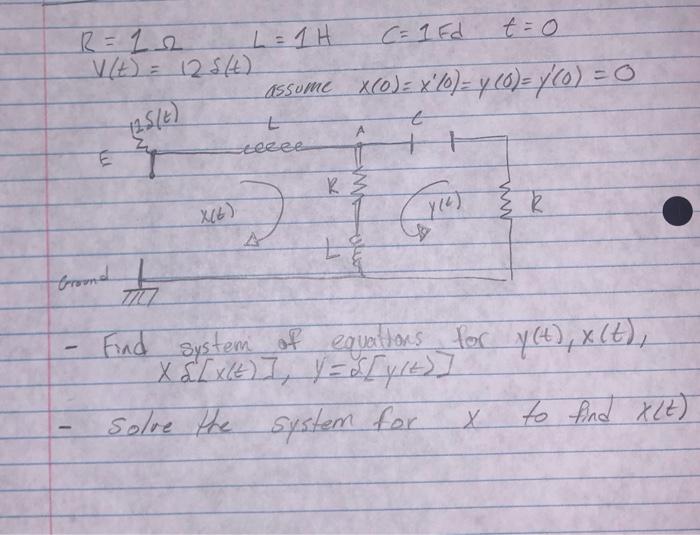 R = 1 Ω L = 1 H C = 1 Fd t = 0
V(t) = 12 δ(t)
assume x(0) = x'(0) = y(0) = y'(0) = 0
12δ(t)
L
A
C
E
R
x(t)
y(t)
R
L
Ground
- Find system of equations for y(t), x(t),
X ℒ[x(t)], Y = ℒ[y(t)]
- Solve the system for X to find x(t)